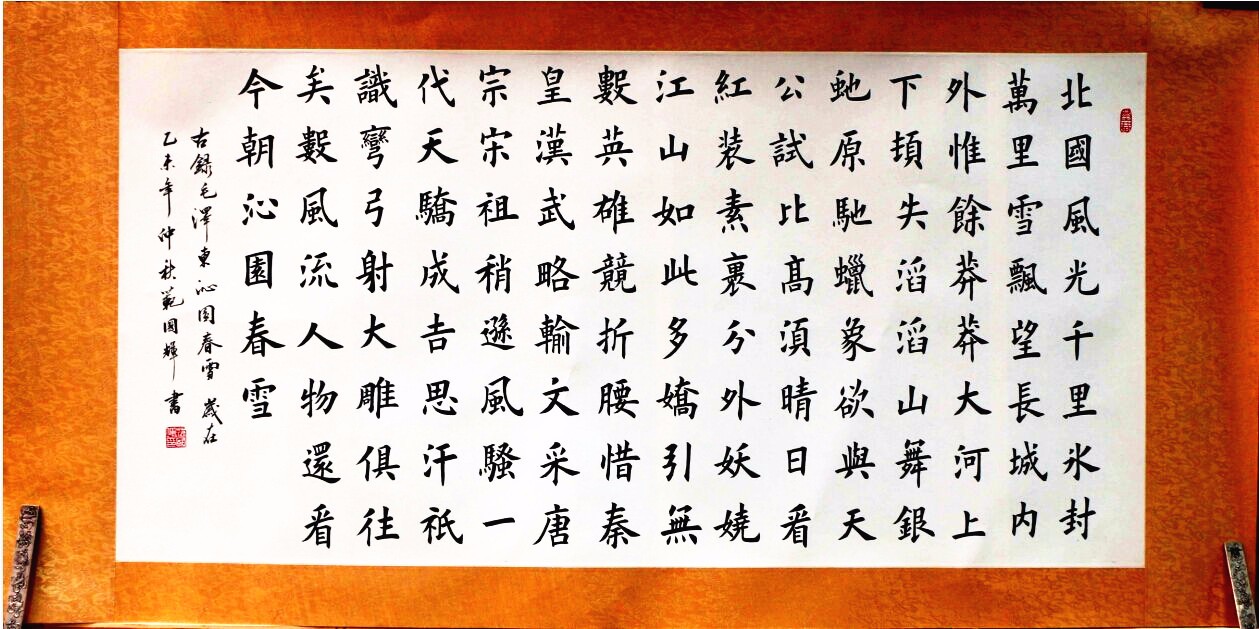 北國風光千里氷封
萬里雪飄望長城内
外惟餘莽莽大河上
下頓失滔滔山舞銀
虵原馳蠟象欲與天
公試比髙須晴日看
紅装素裹分外妖嬈
江山如此多嬌引無
數英雄競折腰惜秦
皇漢武略輸文采唐
宗宋祖稍遜風騷一
代天驕成吉思汗祇
識彎弓射大雕俱往
矣數風流人物還看
今朝沁園春雪
右錄毛澤東沁園春雪 歲在
乙未年仲秋範國輝書